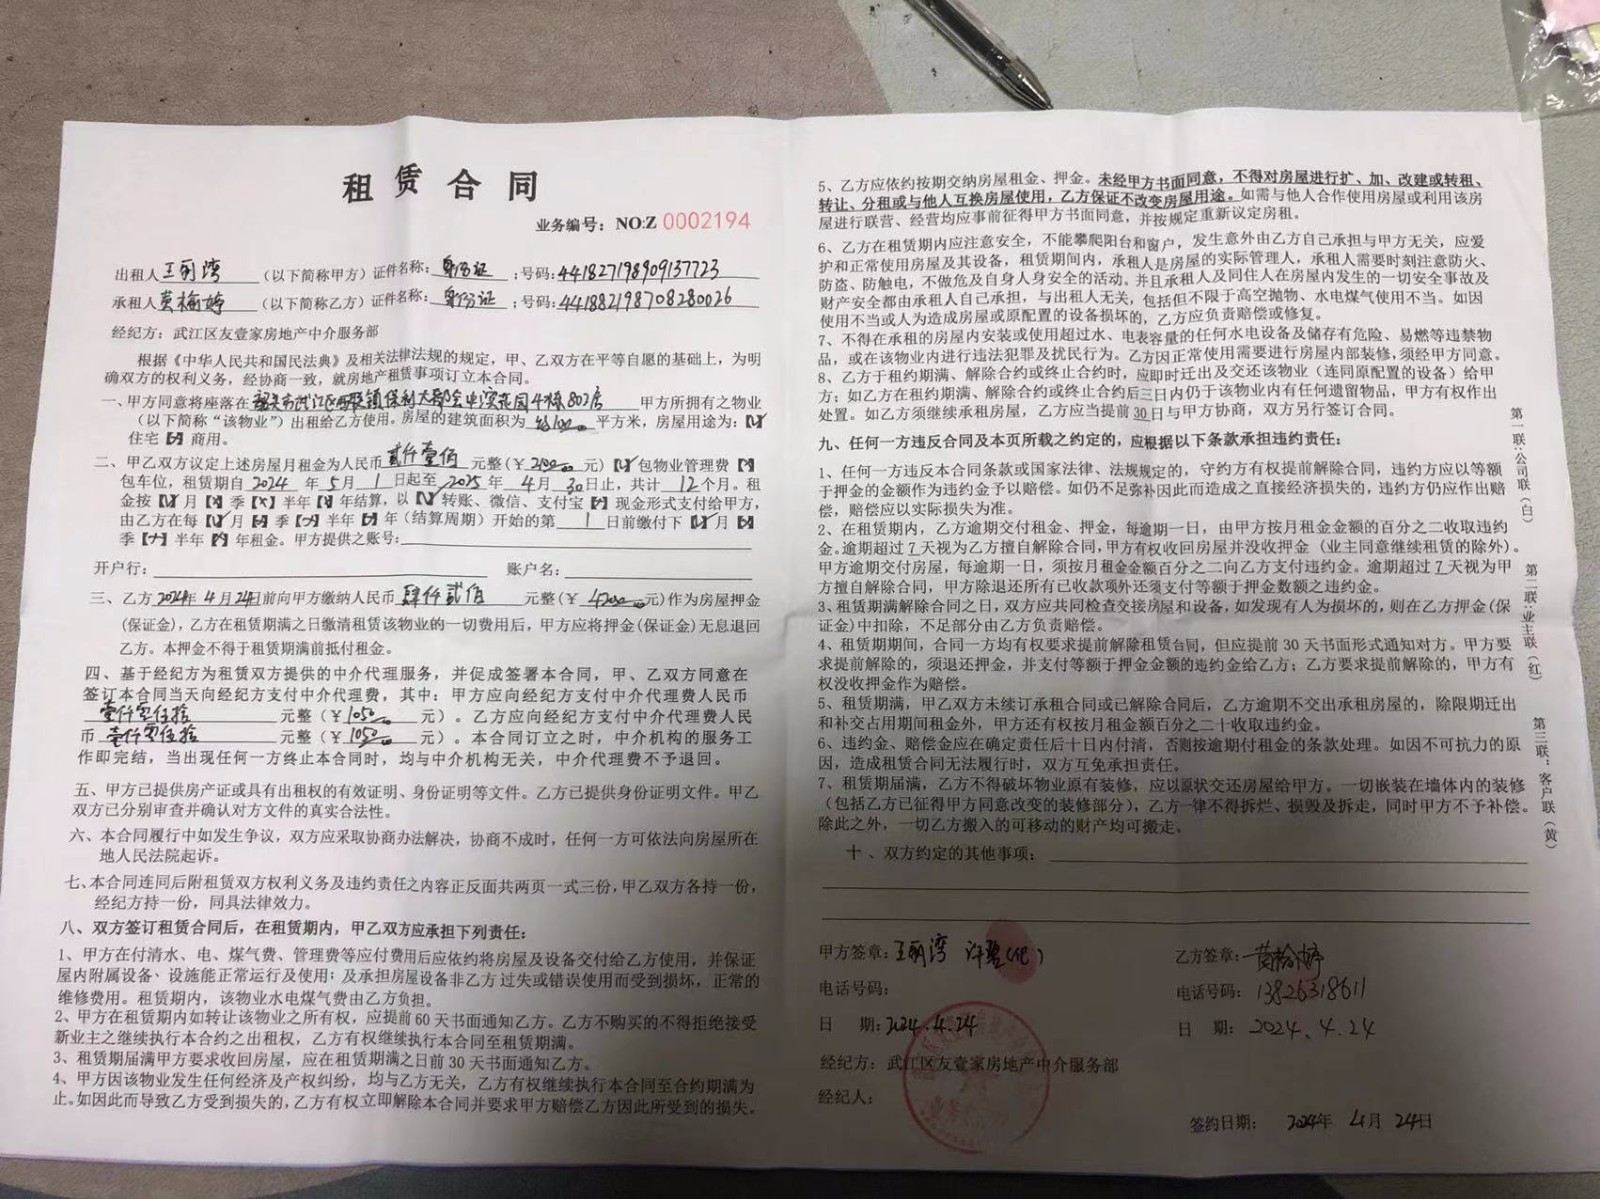 租赁合同
业务编号：NO:Z 0002194
出租人王丽湾（以下简称甲方）证件名称：身份证；号码：441827198909137723
承租人 梅婷（以下简称乙方）证件名称：身份证；号码：441882198708280026
经纪方：武江区友壹家房地产中介服务部
根据《中华人民共和国民法典》及相关法律法规的规定，甲、乙双方在平等自愿的基础上，为明
确双方的权利义务，经协商一致，就房地产租赁事项订立本合同。
一、甲方同意将座落在韶关市武江区西联镇保利大都会中滨花园4栋802房 甲方所拥有之物业
（以下简称“该物业”）出租给乙方使用。房屋的建筑面积为 平方米，房屋用途为：【✓】
住宅【×】商用。
二、甲乙双方议定上述房屋月租金为人民币 贰仟壹佰 元整（￥2100.00元）【✓】包物业管理费【×】
包车位，租赁期自 2024 年 5月 1 日起至 2025 年 4 月 30日止，共计 12 个月。租
金按【✓】月【×】季【×】半年【×】年结算，以【✓】转账、微信、支付宝【×】现金形式支付给甲方，
由乙方在每【✓】月【×】季【×】半年【×】年（结算周期）开始的第 1 日前缴付下【✓】月【×】
季【×】半年【×】年租金。甲方提供之账号：
开户行： 账户名：
三、乙方2024年4月24日前向甲方缴纳人民币 肆仟贰佰 元整（￥4200.00元）作为房屋押金
（保证金），乙方在租赁期满之日缴清租赁该物业的一切费用后，甲方应将押金（保证金）无息退回
乙方。本押金不得于租赁期满前抵付租金。
四、基于经纪方为租赁双方提供的中介代理服务，并促成签署本合同，甲、乙双方同意在
签订本合同当天向经纪方支付中介代理费，其中：甲方应向经纪方支付中介代理费人民币
壹仟零伍拾 元整（￥1050.00 元）。乙方应向经纪方支付中介代理费人民
币 壹仟零伍拾 元整（￥1050.00 元）。本合同订立之时，中介机构的服务工
作即完结，当出现任何一方终止本合同时，均与中介机构无关，中介代理费不予退回。
五、甲方已提供房产证或具有出租权的有效证明、身份证明等文件。乙方已提供身份证明文件。甲乙
双方已分别审查并确认对方文件的真实合法性。
六、本合同履行中如发生争议，双方应采取协商办法解决，协商不成时，任何一方可依法向房屋所在
地人民法院起诉。
七、本合同连同后附租赁双方权利义务及违约责任之内容正反面共两页一式三份，甲乙双方各持一份，
经纪方持一份，同具法律效力。
八、双方签订租赁合同后，在租赁期内，甲乙双方应承担下列责任：
1、甲方在付清水、电、煤气费、管理费等应付费用后应依约将房屋及设备交付给乙方使用，并保证
屋内附属设备、设施能正常运行及使用；及承担房屋设备非乙方过失或错误使用而受到损坏，正常的
维修费用。租赁期内，该物业水电煤气费由乙方负担。
2、甲方在租赁期内如转让该物业之所有权，应提前60天书面通知乙方。乙方不购买的不得拒绝接受
新业主之继续执行本合约之出租权，乙方有权继续执行本合同至租赁期满。
3、租赁期届满甲方要求收回房屋，应在租赁期满之日前30天书面通知乙方。
4、甲方因该物业发生任何经济及产权纠纷，均与乙方无关，乙方有权继续执行本合同至合约期满为
止。如因此而导致乙方受到损失的，乙方有权立即解除本合同并要求甲方赔偿乙方因此所受到的损失。
5、乙方应依约按期交纳房屋租金、押金。未经甲方书面同意，不得对房屋进行扩、加、改建或转租、
转让、分租或与他人互换房屋使用，乙方保证不改变房屋用途。如需与他人合作使用房屋或利用该房
屋进行联营、经营均应事前征得甲方书面同意，并按规定重新议定房租。
6、乙方在租赁期内应注意安全，不能攀爬阳台和窗户，发生意外由乙方自己承担与甲方无关，应爱
护和正常使用房屋及其设备，租赁期间内，承租人是房屋的实际管理人，承租人需要时刻注意防火、
防盗、防触电，不做危及自身人身安全的活动。并且承租人及同住人在房屋内发生的一切安全事故及
财产安全都由承租人自己承担，与出租人无关，包括但不限于高空抛物、水电煤气使用不当。如因
使用不当或人为造成房屋或原配置的设备损坏的，乙方应负责赔偿或修复。
7、不得在承租的房屋内安装或使用超过水、电表容量的任何水电设备及储存有危险、易燃等违禁物
品，或在该物业内进行违法犯罪及扰民行为。乙方因正常使用需要进行房屋内部装修，须经甲方同意。
8、乙方于租约期满、解除合约或终止合约时，应即时迁出及交还该物业（连同原配置的设备）给甲
方；如乙方在租约期满、解除合约或终止合约后三日内仍于该物业内有任何遗留物品，甲方有权作出
处置。如乙方须继续承租房屋，乙方应当提前30日与甲方协商，双方另行签订合同。
九、任何一方违反合同及本页所载之约定的，应根据以下条款承担违约责任：
1、任何一方违反本合同条款或国家法律、法规规定的，守约方有权提前解除合同，违约方应以等额
于押金的金额作为违约金予以赔偿。如仍不足弥补因此而造成之直接经济损失的，违约方仍应作出赔
偿，赔偿应以实际损失为准。
2、在租赁期内，乙方逾期交付租金、押金，每逾期一日，由甲方按月租金金额的百分之二收取违约
金。逾期超过7天视为乙方擅自解除合同，甲方有权收回房屋并没收押金（业主同意继续租赁的除外）。
甲方逾期交付房屋，每逾期一日，须按月租金金额百分之二向乙方支付违约金。逾期超过7天视为甲
方擅自解除合同，甲方除退还所有已收款项外还须支付等额于押金数额之违约金。
3、租赁期满解除合同之日，双方应共同检查交接房屋和设备，如发现有人为损坏的，则在乙方押金（保
证金）中扣除，不足部分由乙方负责赔偿。
4、租赁期期间，合同一方均有权要求提前解除租赁合同，但应提前30天书面形式通知对方。甲方要
求提前解除的，须退还押金，并支付等额于押金金额的违约金给乙方；乙方要求提前解除的，甲方有
权没收押金作为赔偿。
5、租赁期满，甲乙双方未续订承租合同或已解除合同后，乙方逾期不交出承租房屋的，除限期迁出
和补交占用期间租金外，甲方还有权按月租金额百分之二十收取违约金。
6、违约金、赔偿金应在确定责任后十日内付清，否则按逾期付租金的条款处理。如因不可抗力的原
因，造成租赁合同无法履行时，双方互免承担责任。
7、租赁期届满，乙方不得破坏物业原有装修，应以原状交还房屋给甲方。一切嵌装在墙体内的装修
（包括乙方已征得甲方同意改变的装修部分），乙方一律不得拆烂、损毁及拆走，同时甲方不予补偿。
除此之外，一切乙方搬入的可移动的财产均可搬走。
十、双方约定的其他事项：
甲方签章：王丽湾 许 （代） 乙方签章：黄梅婷
电话号码： 电话号码：13826318611
日 期：2024.4.24 日 期：2024.4.24
经纪方：武江区友壹家房地产中介服务部
经纪人：
签约日期： 2024年 4月 24日
第一联：公司联（白）
第二联：业主联（红）
第三联：客户联（黄）